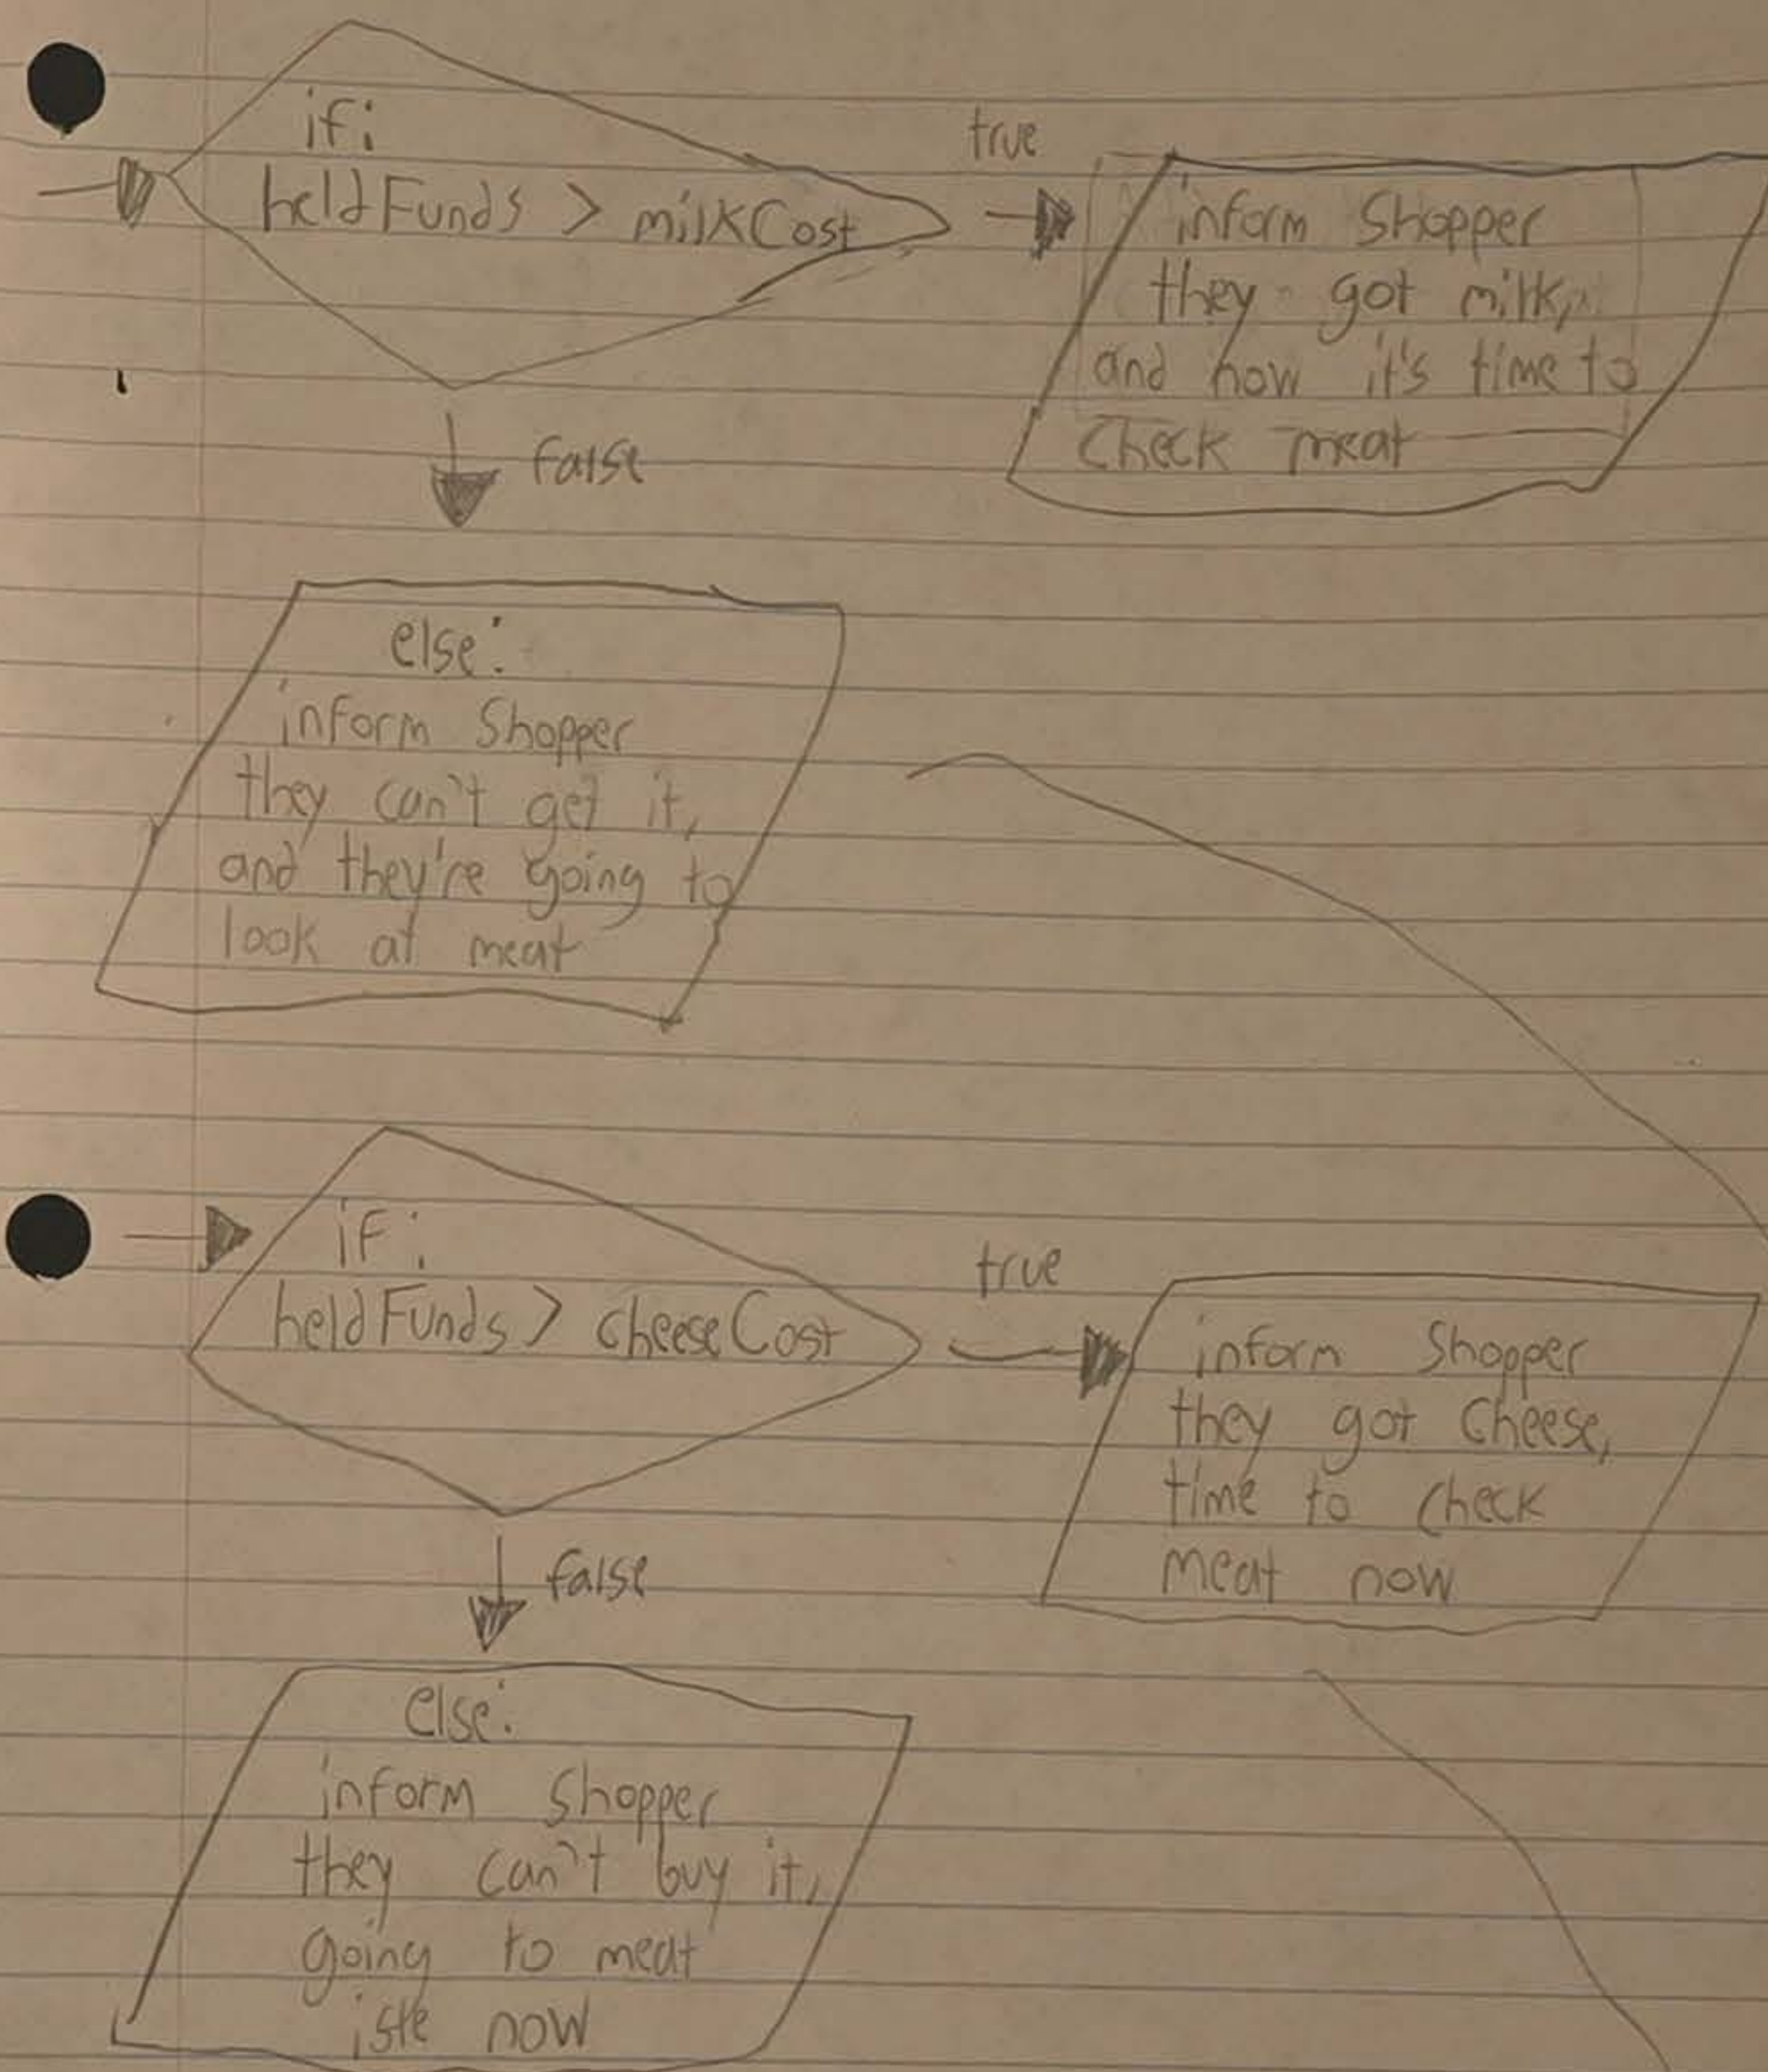 if:
heldFunds > milkCost
true
inform Shopper
they got milk,
and now it's time to
Check meat
false
else:
inform Shopper
they can't get it,
and they're going to
look at meat
if:
heldFunds > cheeseCost
true
inform Shopper
they got Cheese,
time to check
meat now
false
else:
inform shopper
they can't buy it,
going to meat
isle now